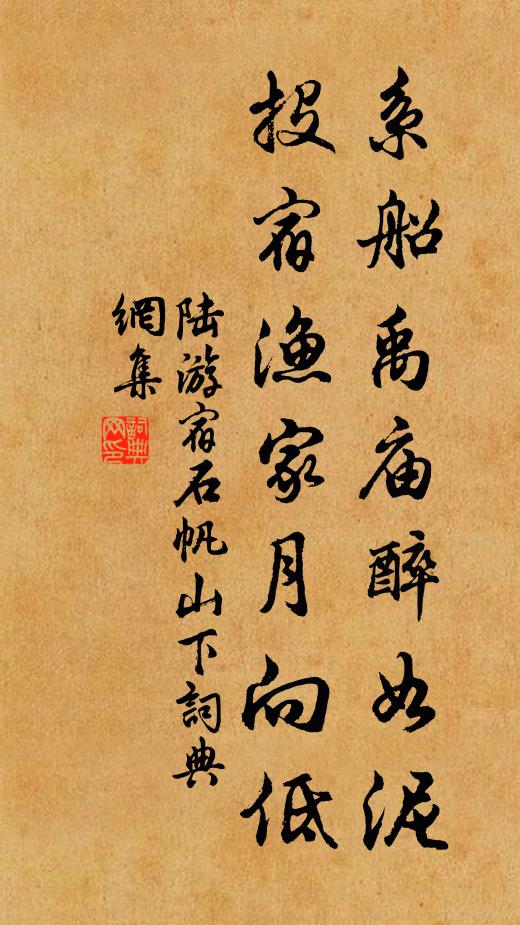 系船禹庙醉如泥
投宿渔家月向低
陆游宿石帆山下詞典
網集
詞典网印